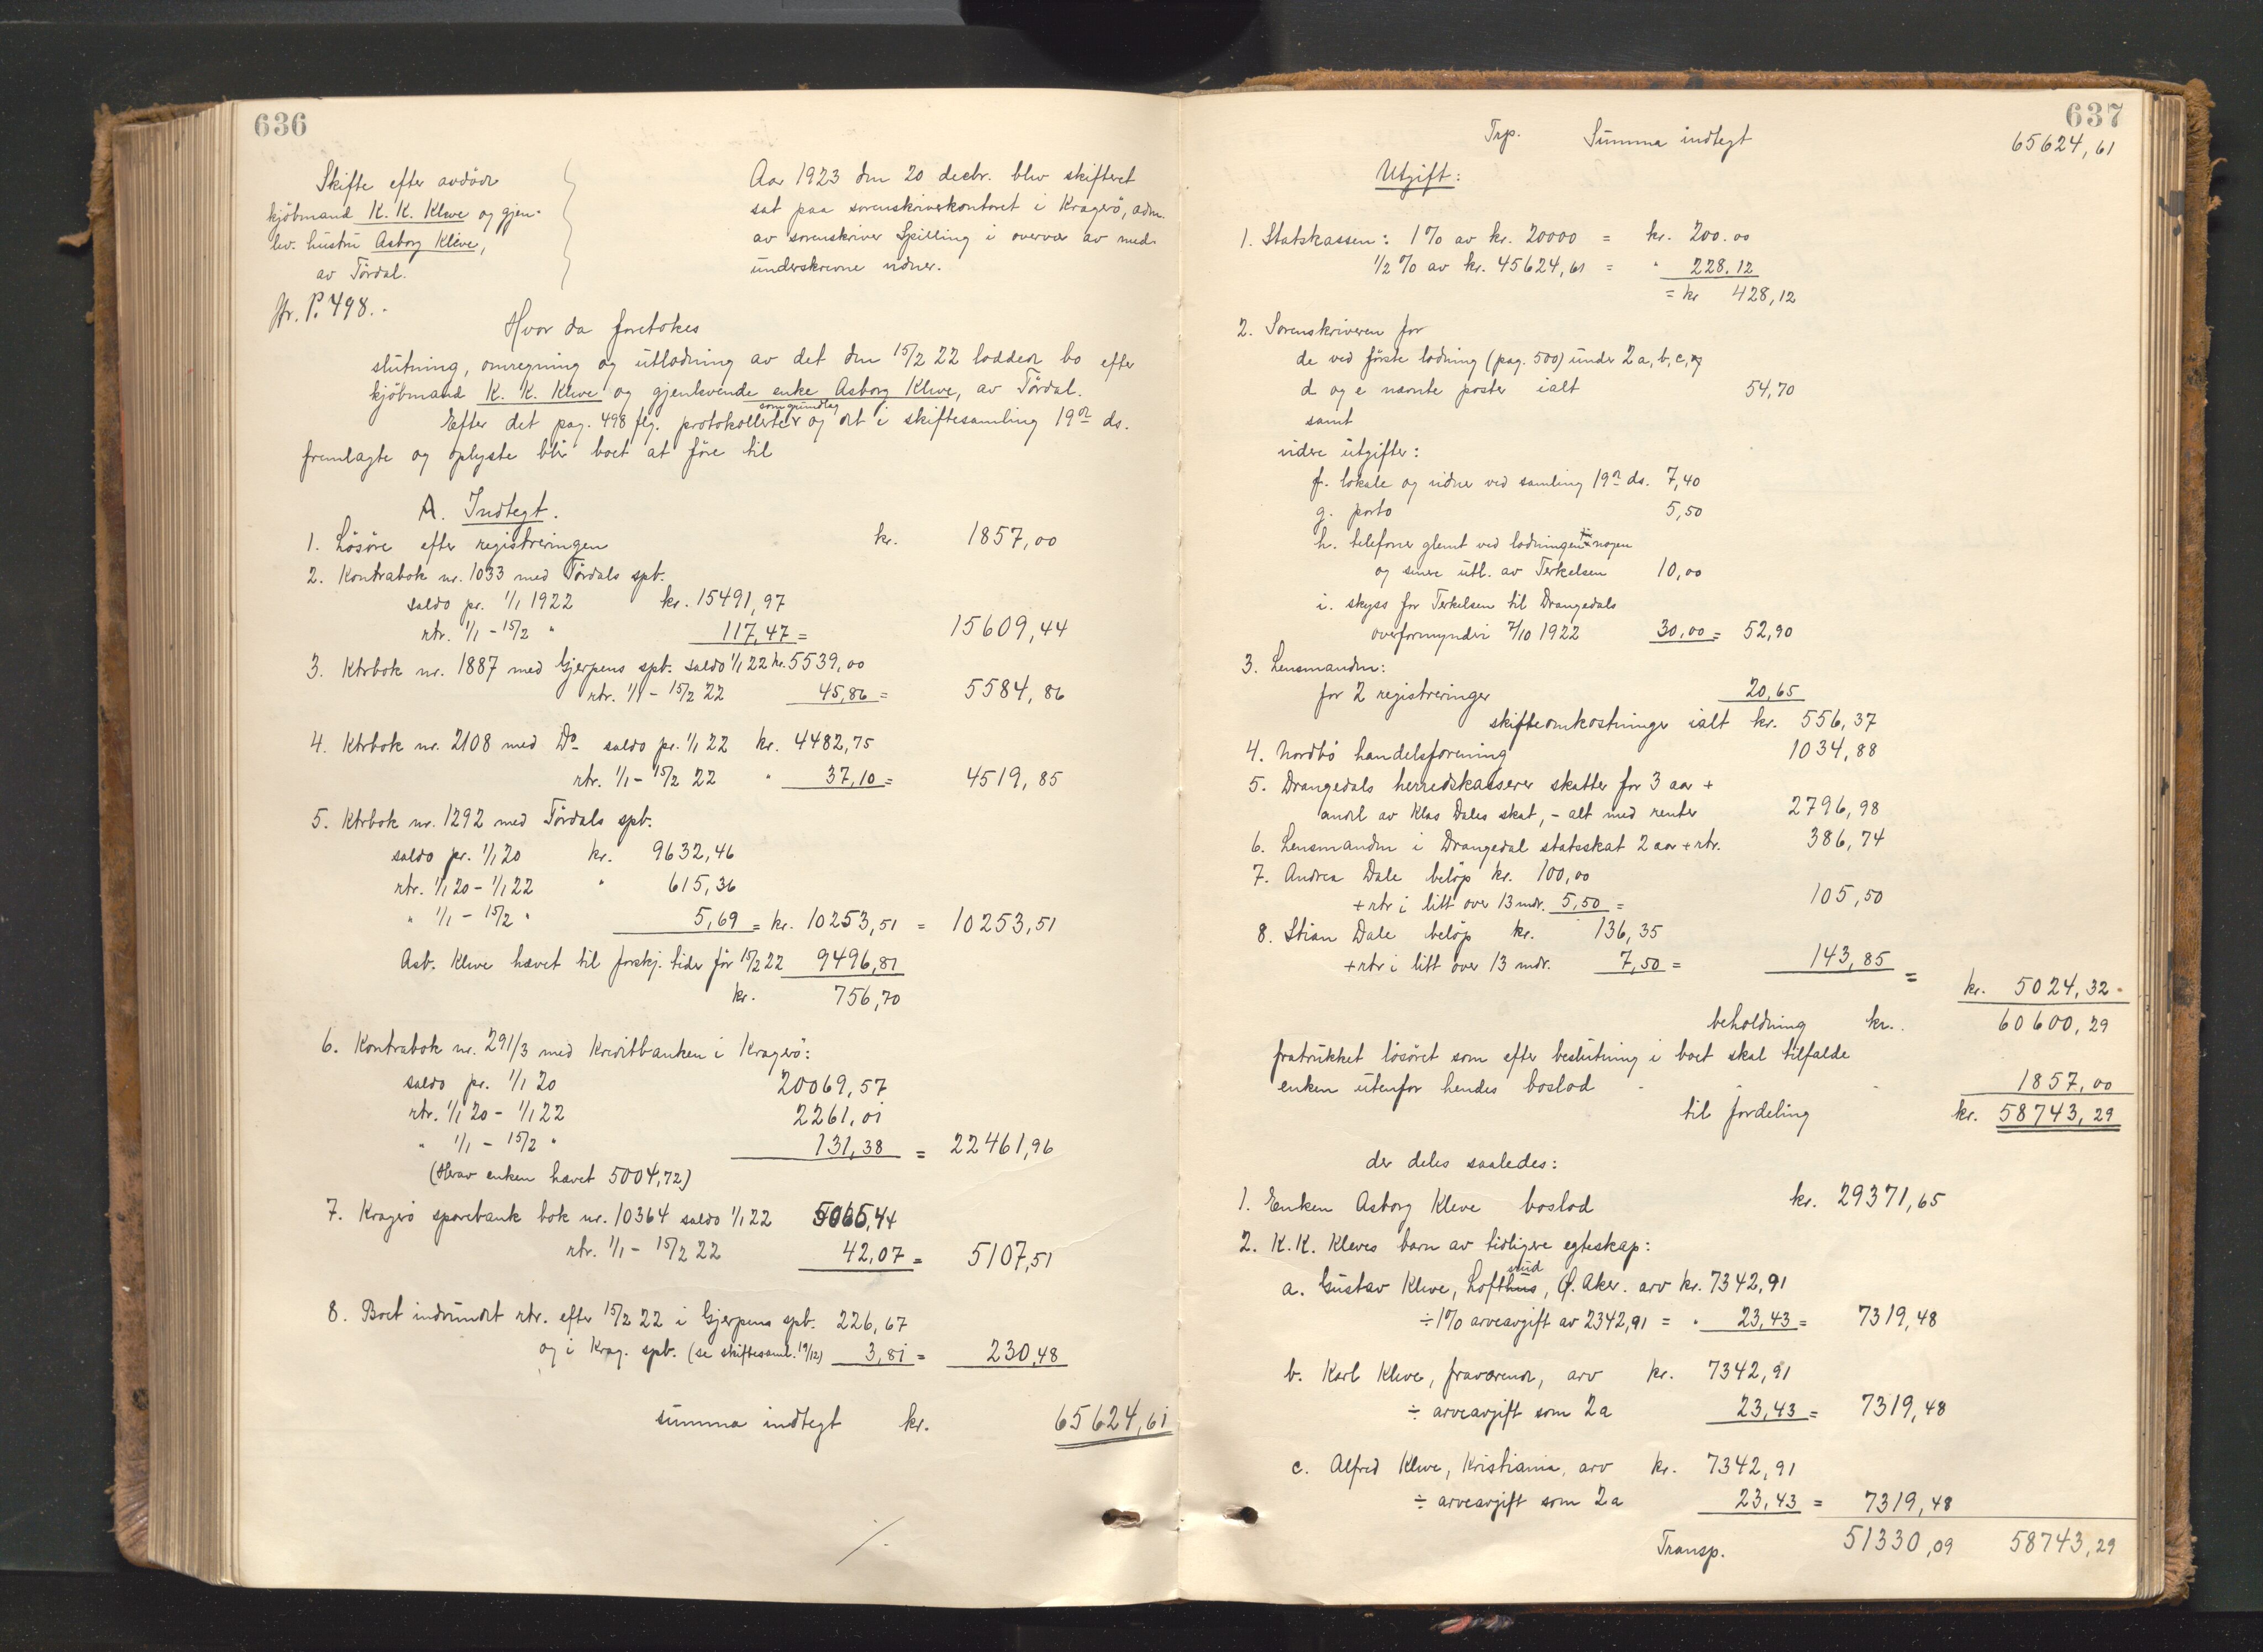 636
Skifte efter avdöde
kjöbmand K. K. Kleve og gjen-
lev. hustru Asborg Kleve,
av Tördal.
Jfr. P. 498.
Aar 1923 den 20 decbr. blev skifteret
sat paa sorenskriverkontoret i Kragerö, adm.
av sorenskriver Spilling i overvær av med-
underskrevne vidner.
Hvor da foretokes
slutning, omregning og utlodning av det den 15/2 22 loddede bo efter
kjöbmand K. K. Kleve og gjenlevende enke Asborg Kleve, av Tördal.
Efter det pag. 498 flg. protokollerte som grundlag og det i skiftesamling 19de ds.
fremlagte og oplyste blir boet at före til
A. Indtegt.
1. Lösöre efter registreringen kr. 1857,00
2. Kontrabok nr. 1033 med Tördals spb.
saldo pr. 1/1 1922 kr. 15491,97
rtr. 1/1 - 15/2 " 117,47 = 15609,44
3. Ktrbok nr. 1887 med Gjerpens spb. saldo 1/1 22 kr. 5539,00
rtr. 1/1 - 15/2 22 45,86 = 5584,86
4. Ktrbok nr. 2108 med Do saldo pr. 1/1 22 kr. 4482,75
rtr. 1/1 - 15/2 22 " 37,10 = 4519,85
5. Ktrbok nr. 1292 med Tördals spb.
saldo pr. 1/1 20 kr. 9632,46
rtr. 1/1 20 - 1/1 22 " 615,36
" 1/1 - 15/2 " 5,69 = kr. 10253,51 = 10253,51
Asb. Kleve hævet til forskj. tider för 15/2 22 9496,81
kr. 756,70
6. Kontrabok nr. 291/3 med Kreditbanken i Kragerö:
saldo pr. 1/1 20 20069,57
rtr. 1/1 20 - 1/1 22 2261,01
" 1/1 - 15/2 " 131,38 = 22461,96
(Herav enken hævet 5004,72)
7. Kragerö sparebank bok nr. 10364 saldo 1/1 22 5065,44
rtr. 1/1 - 15/2 22 42,07 = 5107,51
8. Boet indvundet rtr. efter 15/2 22 i Gjerpens spb. 226,67
og i Krag. spb. (se skiftesaml. 19/12) 3,81 = 230,48
summa indtegt kr. 65624,61
637
Trp. Summa indtegt 65624,61
Utgift:
1. Statskassen: 1% av kr. 20000 = kr. 200.00
1/2 % av kr. 45624,61 = " 228.12
= kr 428,12
2. Sorenskriveren for
de ved förste lodning (pag. 500) under 2 a, b, c, og
d og e nævnte poster ialt 54,70
samt
videre utgifter:
f. lokale og vidner ved samling 19de ds. 7,40
g. porto 5,50
h. telefoner glemt ved lodningen + nogen
og senere utl. av Terkelsen 10,00
i. skyss for Terkelsen til Drangedals
overformynderi 7/10 1922 30,00 = 52,90
3. Lensmanden:
for 2 registreringer 20,65
skifteomkostninger ialt kr. 556,37
4. Nordbö handelsforening 1034,88
5. Drangedals herredskasserer skatter for 3 aar +
andel av Klas Dales skat, - alt med renter 2796,98
6. Lensmanden i Drangedal statsskat 2 aar + rtr. 386,74
7. Andrea Dale belöp kr. 100,00
+ rtr i litt over 13 mdr. 5,50 = 105,50
8. Stian Dale belöp kr. 136,35
+ rtr i litt over 13 mdr. 7,50 = 143,85 = kr. 5024,32
beholdning kr. 60600,29
fratrukket lösöret som efter beslutning i boet skal tilfalde
enken utenfor hendes boslod 1857,00
til fordeling kr. 58743,29
der deles saaledes:
1. Enken Asborg Kleve boslod kr. 29371,65
2. K. K. Kleves barn av tidligere egteskap:
a. Gustav Kleve, Lofthus, Ö. Aker. arv kr. 7342,91
÷ 1% arveavgift av 2342,91 = " 23,43 = 7319,48
b. Karl Kleve, fraværende, arv kr. 7342,91
÷ arveavgift som 2a 23,43 = 7319,48
c. Alfred Kleve, Kristiania, arv kr. 7342,91
÷ arveavgift som 2a 23,43 = 7319,48
Transp. 51330,09 58743,29